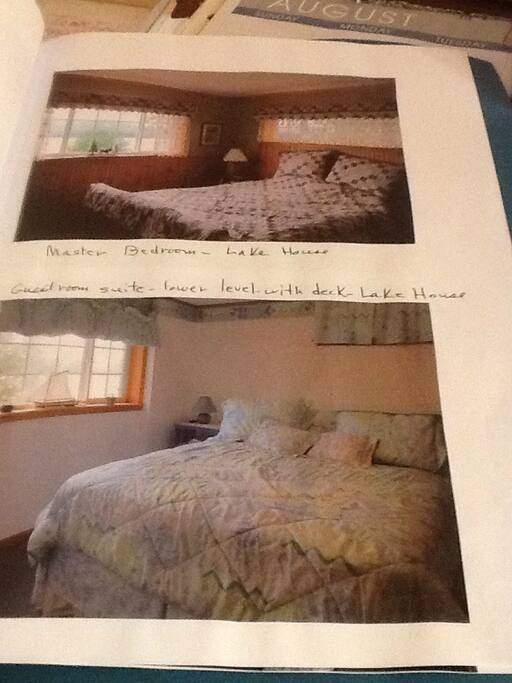 AUGUST
SUNDAY MONDAY TUESDAY
Master Bedroom - Lake House
Guestroom suite - lower level - with deck - Lake House